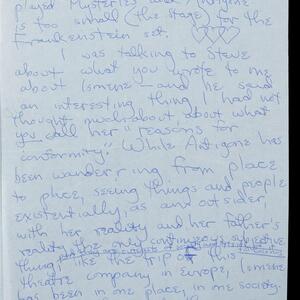 played Mysteries and Antigone
is too small (the stage) for the
Frankenstein set.
I was talking to Steve
about what you wrote to me
about Ismene and he said
an interesting thing I had not
thought much about, about what
you call her "reasons for
conformity." While Antigone has
been wandering from place
to place, seeing things and people
existentially, as an outsider,
with her reality and her father's
reality the only continuous objective
thing, like the trip of this
theatre company in Europe, Ismene
has been in one place, in one society.